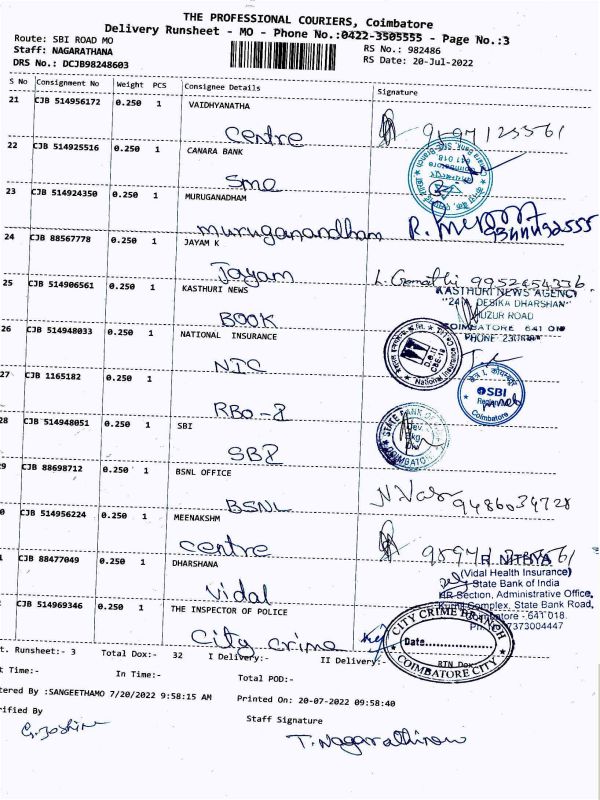 THE PROFESSIONAL COURIERS, Coimbatore
Delivery Runsheet - MO - Phone No.:0422-3505555 - Page No.:3
Route: SBI ROAD MO
RS No.: 982486
Staff: NAGARATHANA
RS Date: 20-Jul-2022
DRS No.: DCJB98248603
S No Consignment No Weight PCS Consignee Details Signature
21 CJB 514956172 0.250 1 VAIDHYANATHA
Centre
22 CJB 514925516 0.250 1 CANARA BANK
SME
23 CJB 514924350 0.250 1 MURUGANADHAM
Muruganandham
24 CJB 88567778 0.250 1 JAYAM K
Jayam L. Gomathi 9952454336
25 CJB 514906561 0.250 1 KASTHURI NEWS
KASTHURI NEWS AGENCY
"24 A DESIKA DHARSHAN"
HUZUR ROAD
BOOK COIMBATORE
26 CJB 514948033 0.250 1 NATIONAL INSURANCE
NIC
27 CJB 1165182 0.250 1
RBO-2
SBI
Coimbatore
28 CJB 514948051 0.250 1 SBI
STATE BANK
SBI
9 CJB 88698712 0.250 1 BSNL OFFICE
BSNL 9486034728
0 CJB 514956224 0.250 1 MEENAKSHM
Centre
CJB 88477049 0.250 1 DHARSHANA
R. NITHYA
(Vidal Health Insurance)
State Bank of India
HR Section, Administrative Office,
Complex, State Bank Road,
641 018.
7373004447
Vidal
CJB 514969346 0.250 1 THE INSPECTOR OF POLICE
City crime
CITY CRIME BRANCH
Date
COIMBATORE CITY
t. Runsheet:- 3 Total Dox:- 32 I Delivery:- II Delivery:- RTN Dox
t Time:- In Time:- Total POD:-
tered By :SANGEETHAMO 7/20/2022 9:58:15 AM Printed On: 20-07-2022 09:58:40
rified By Staff Signature